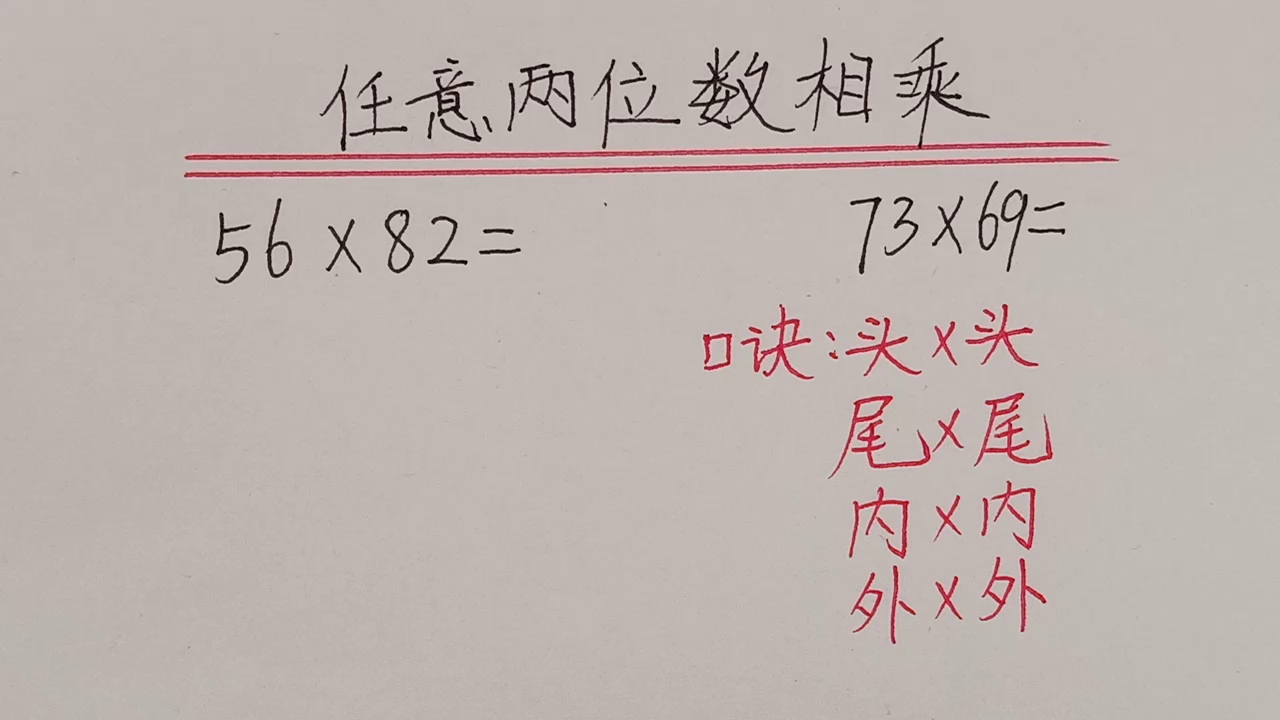 任意两位数相乘
56×82=
73×69=
口诀:头×头
尾×尾
内×内
外×外